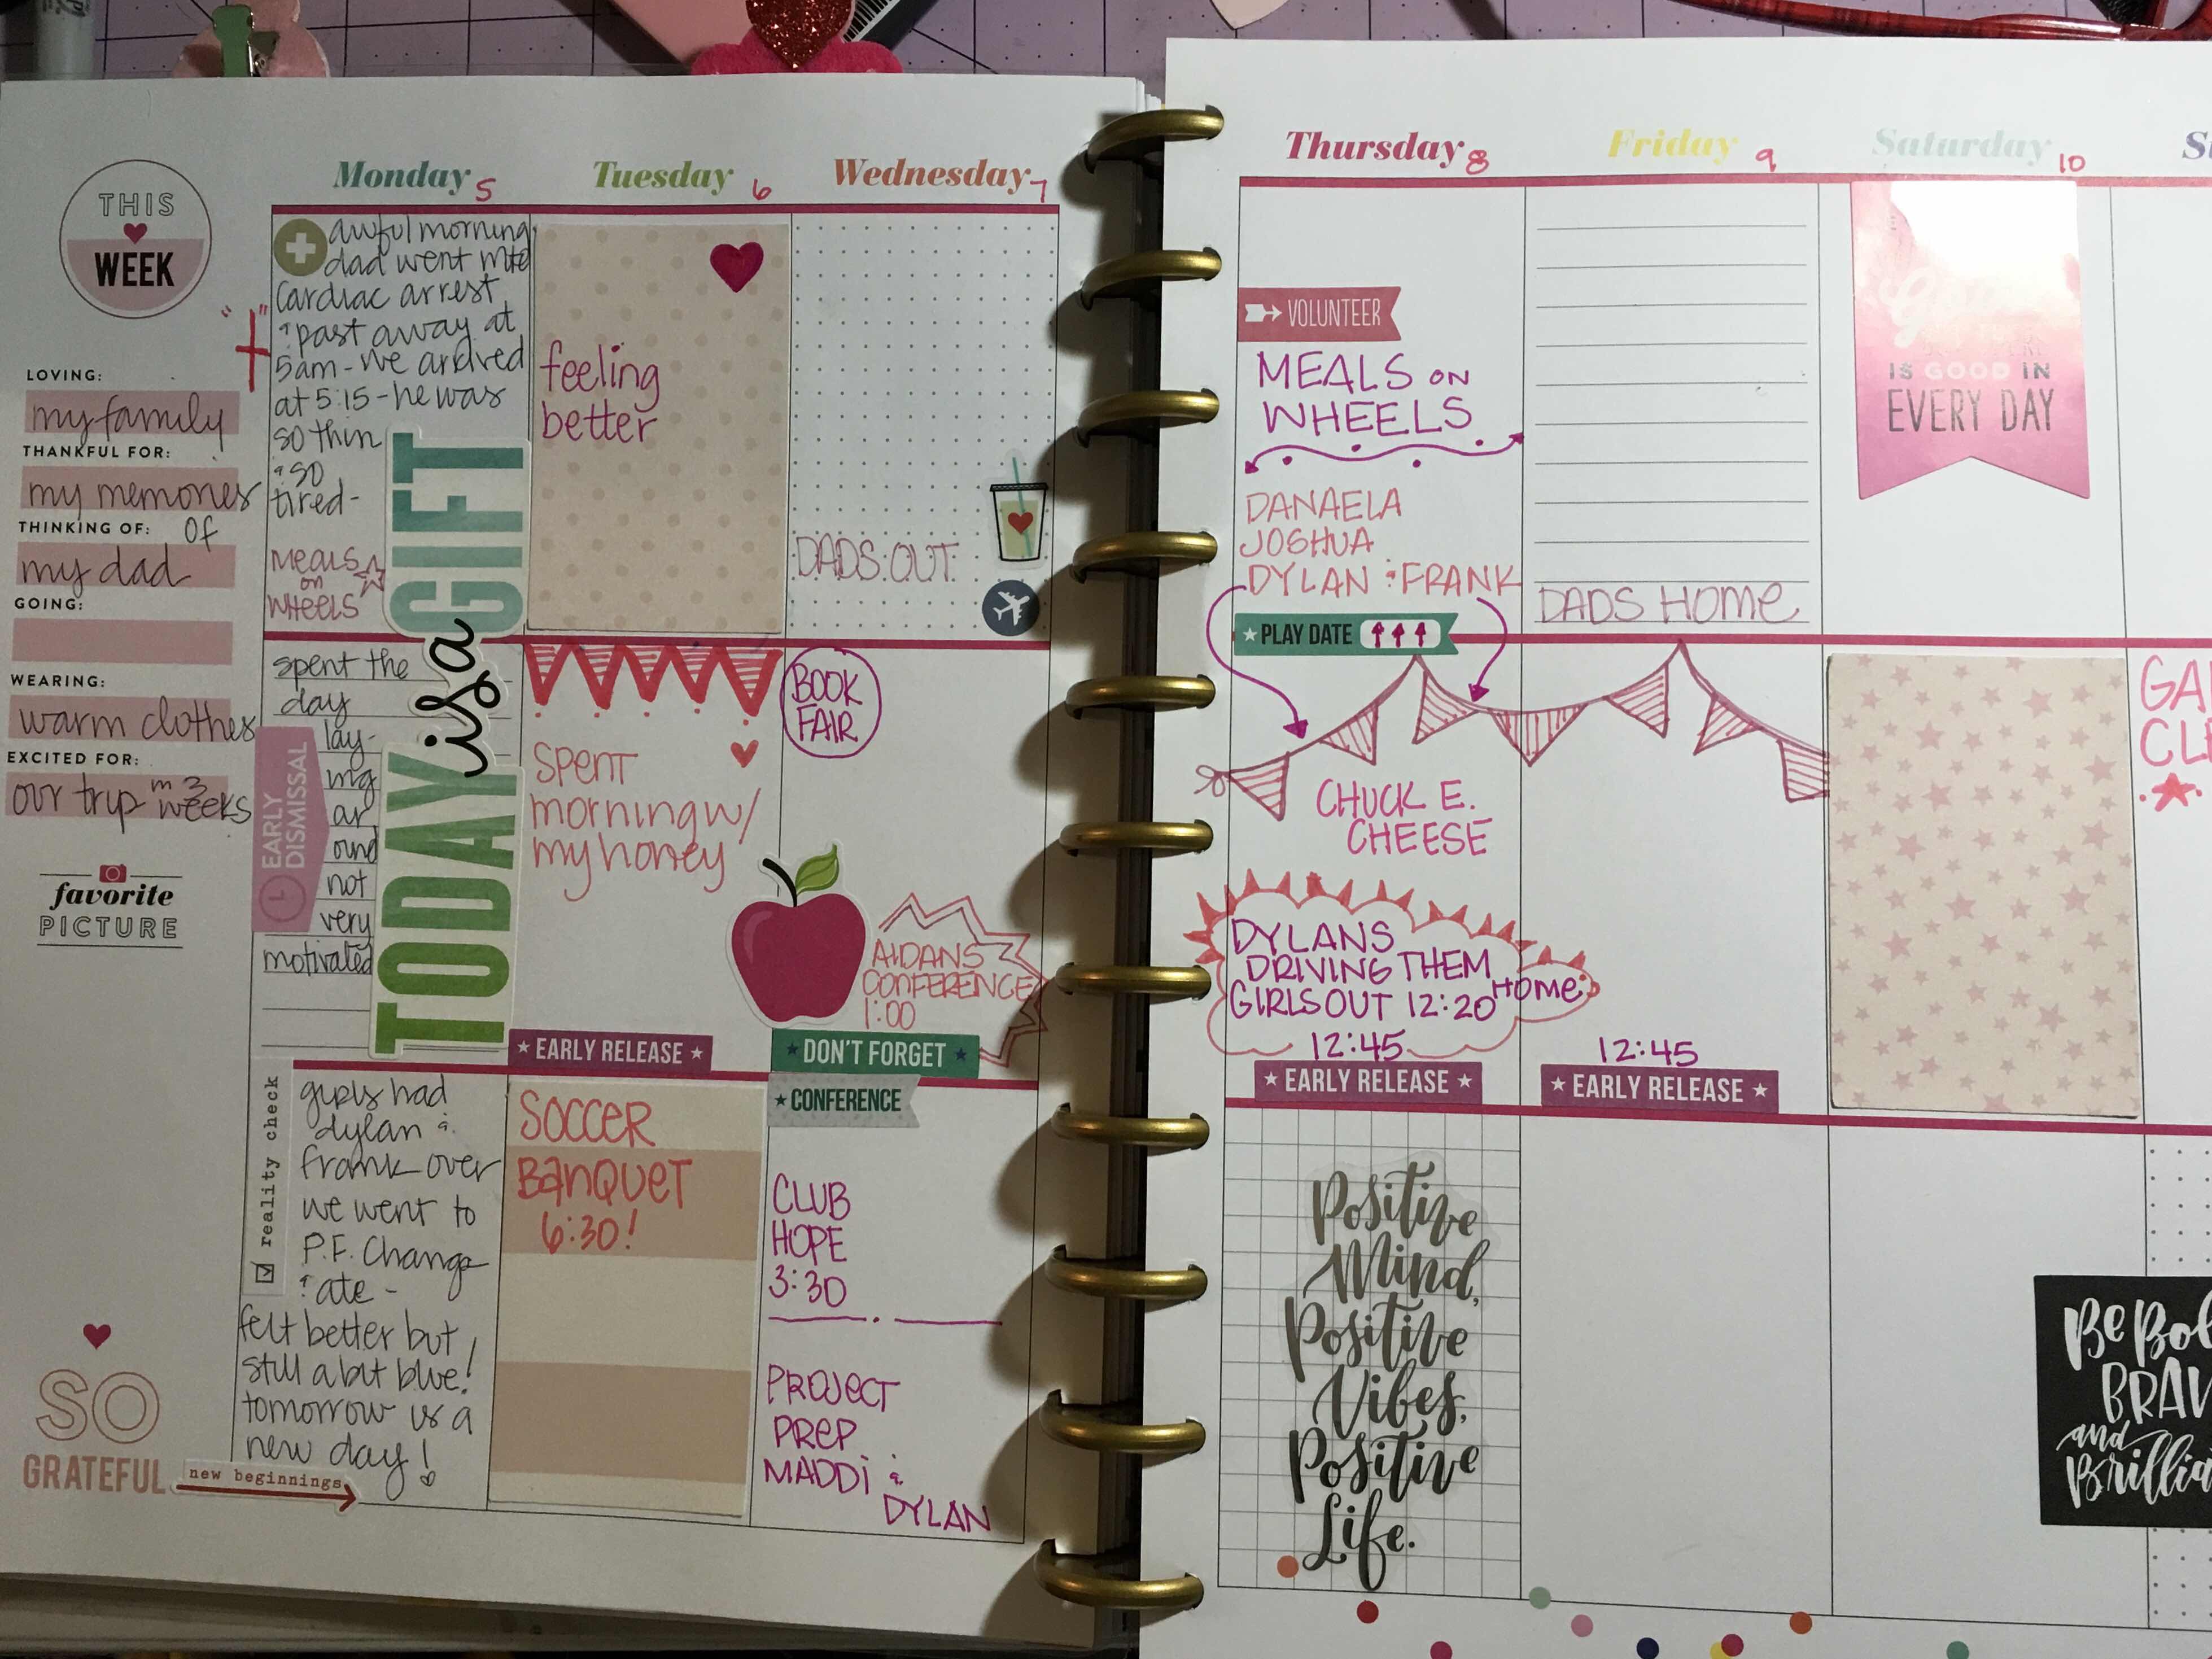 THIS
WEEK
LOVING:
my family
THANKFUL FOR:
my memories
THINKING OF: of
my dad
GOING:
WEARING:
warm clothes
EXCITED FOR:
our trip in 3
weeks
favorite
PICTURE
SO
GRATEFUL
new beginnings
Monday 5
awful morning
dad went into
cardiac arrest
& past away at
5am - we arrived
at 5:15 - he was
so thin
& so
tired -
MEALS
on
WHEELS
TODAY is a GIFT
spent the
day
lay-
ing
ar
ound
not
very
motivated
EARLY
DISMISSAL
reality check
girls had
dylan &
frank over
we went to
P.F. Changs
& ate -
felt better but
still a bit blue!
tomorrow is a
new day!
Tuesday 6
feeling
better
spent
morning w/
my honey
EARLY RELEASE
SOCCER
BANQUET
6:30!
Wednesday 7
DADS OUT
BOOK
FAIR
AIDANS
CONFERENCE
1:00
DON'T FORGET
CONFERENCE
CLUB
HOPE
3:30
PROJECT
PREP
MADDI &
DYLAN
Thursday 8
VOLUNTEER
MEALS ON
WHEELS
DANAELA
JOSHUA
DYLAN & FRANK
PLAY DATE
CHUCK E.
CHEESE
DYLANS
DRIVING THEM
HOME
GIRLS OUT 12:20
12:45
EARLY RELEASE
Positive
Mind,
Positive
Vibes,
Positive
Life.
Friday 9
DADS HOME
12:45
EARLY RELEASE
Saturday 10
IS GOOD IN
EVERY DAY
Be Bol
BRAV
and
Brillia
S
GA
CL